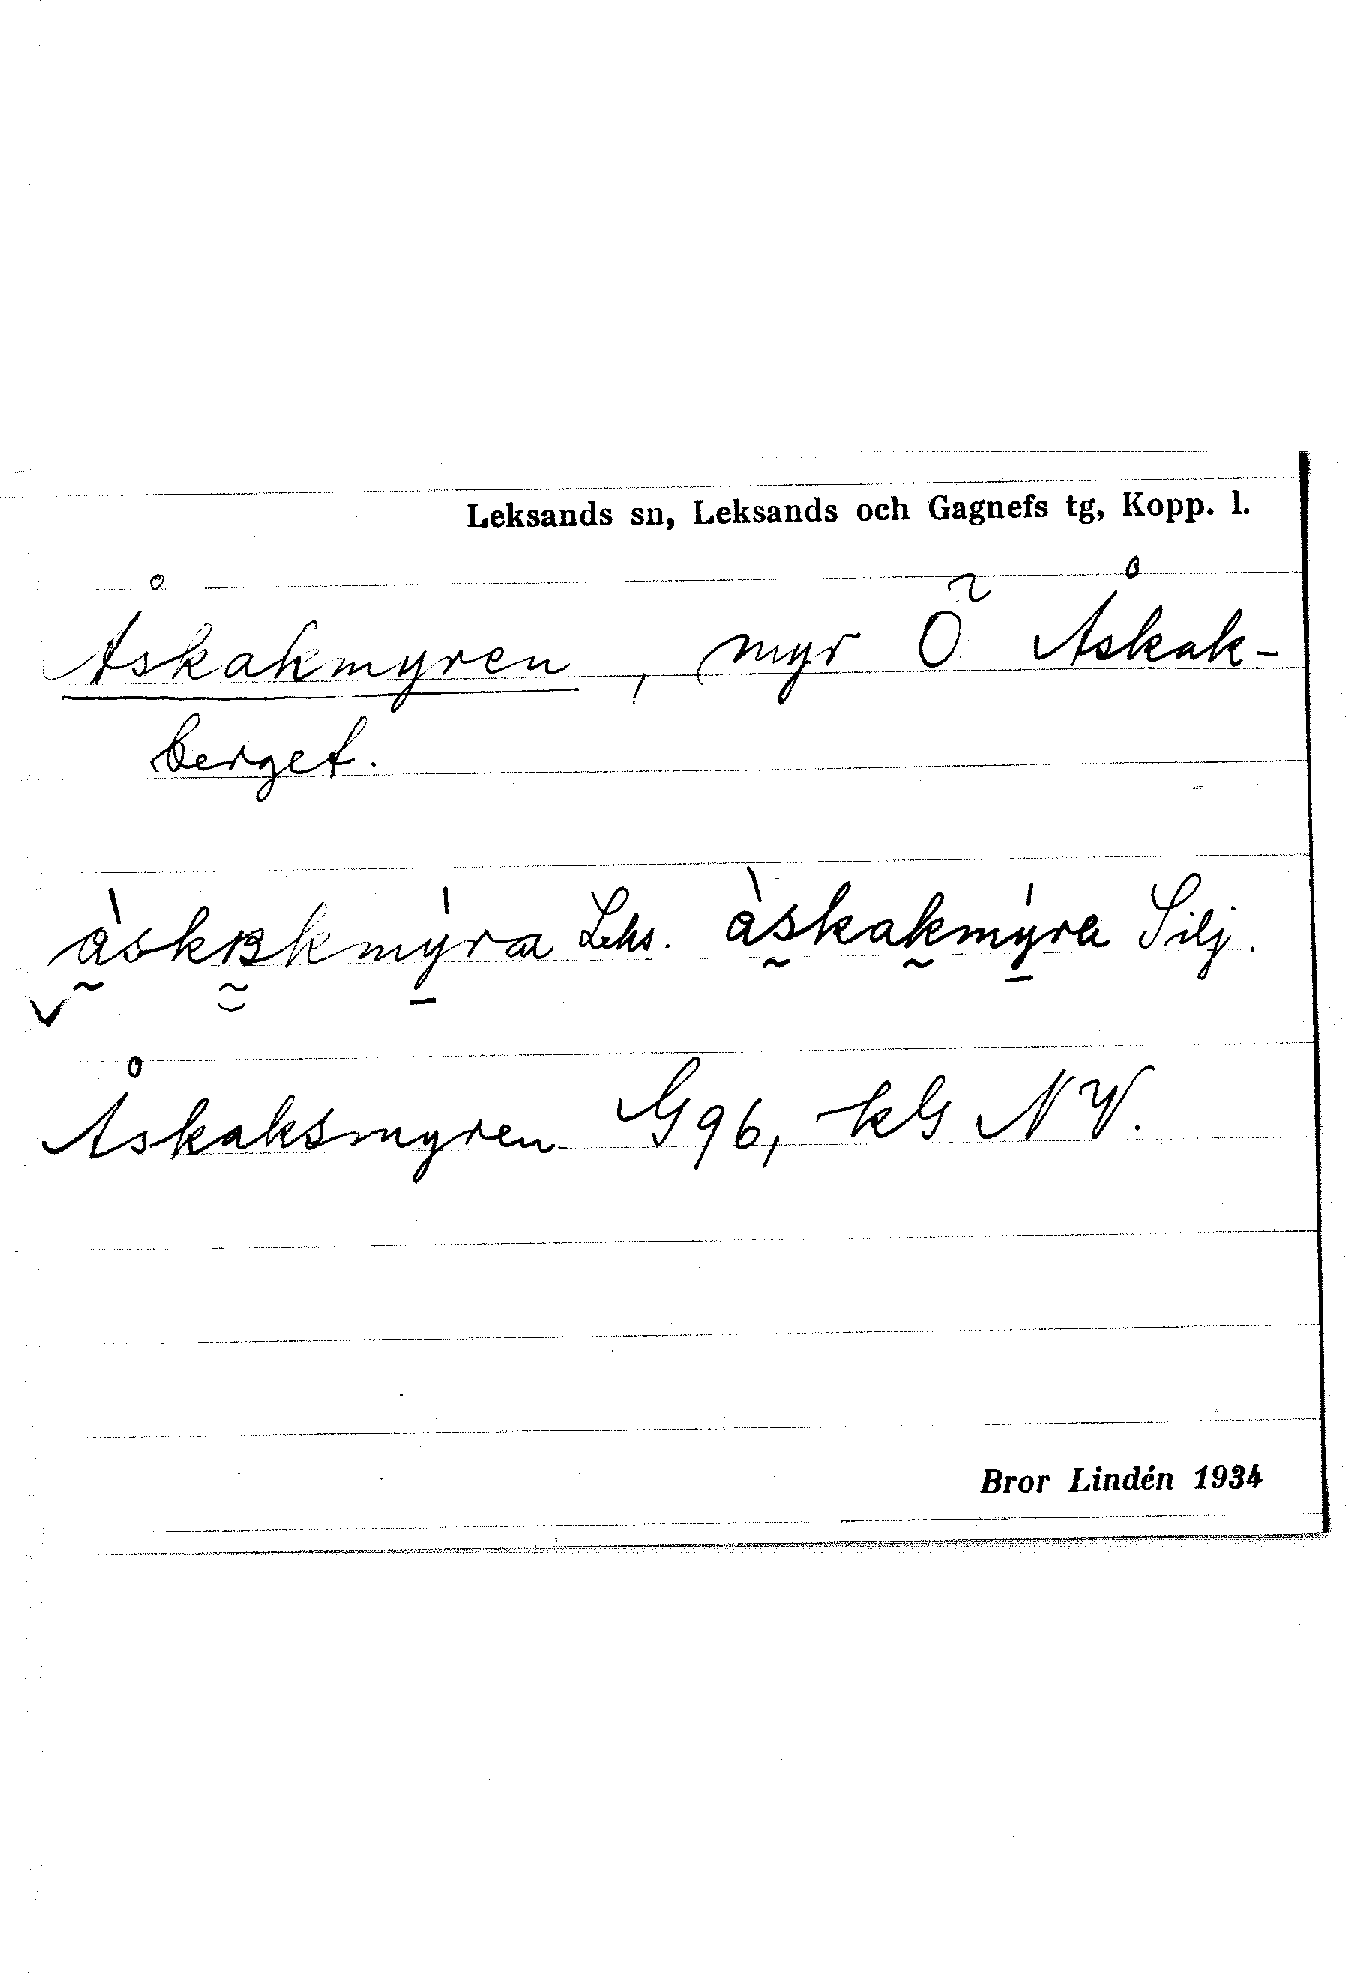 Leksands sn, Leksands och Gagnefs tg, Kopp. l.
Åskakmyren, myr Ö Åskak-
berget.
àskakmýra Leks. àskakmýra Silj.
Åskaksmyren G96, kG NV.
Bror Lindén 1934